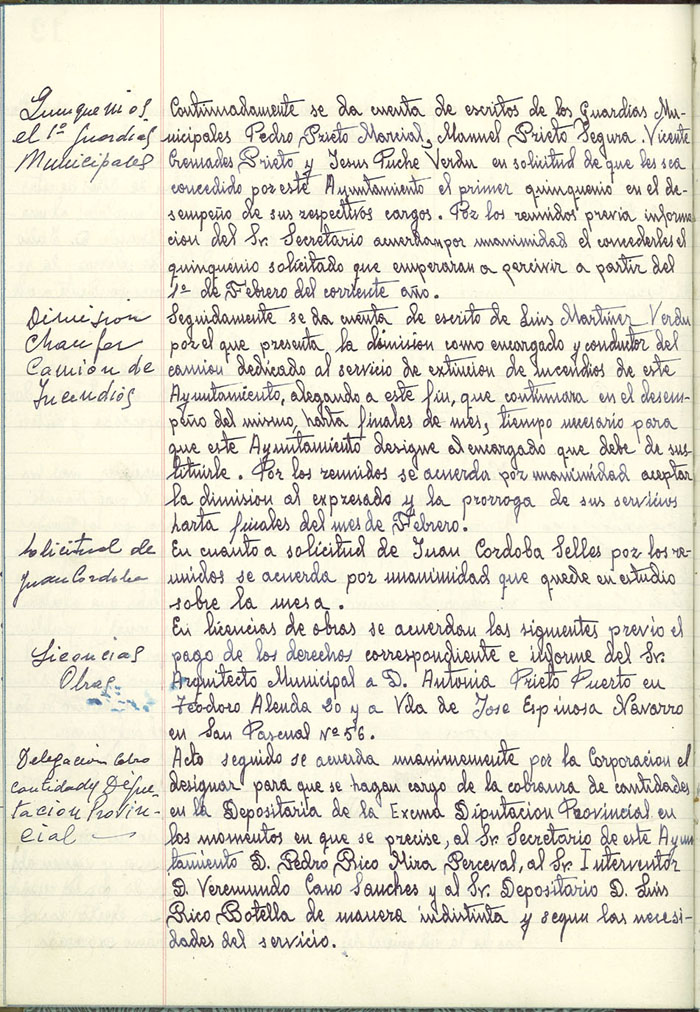 Quinquenios
el 1º Guardias
Municipales
Continuadamente se da cuenta de escritos de los Guardias Mu-
nicipales Pedro Prieto Marcial, Manuel Prieto Segura. Vicente
Cremades Prieto y Jesus Puche Verdu en solicitud de que les sea
concedido por este Ayuntamiento el primer quinquenio en el de-
sempeño de sus respectivos cargos. Por los reunidos previa informa-
cion del Sr. Secretario acuerdan por unanimidad el concederles el
quinquenio solicitado que emperaran a percivir a partir del
1º de Febrero del corriente año.
Dimision
Chaufer
Camión de
Incendios
Seguidamente se da cuenta de escrito de Luis Martinez Verdu
por el que presenta la dimision como encargado y conductor del
camion dedicado al servicio de extincion de Incendios de este
Ayuntamiento, alegando a este fin, que continuara en el desem-
peño del mismo, harta finales de mes, tiempo necesario para
que este Ayuntamiento designe al encargado que debe de sus-
tituirle. Por los reunidos se acuerda por unanimidad aceptar
la dimision al expresado y la prorroga de sus servicios
harta finales del mes de Febrero.
Solicitud de
Juan Cordoba
En cuanto a solicitud de Juan Cordoba Selles por los re-
unidos se acuerda por unanimidad que quede en estudio
sobre la mesa.
Licencias
Obras
En licencias de obras se acuerdan las siguientes previo el
pago de los derechos correspondiente e informe del Sr.
Arquitecto Municipal a D. Antonia Prieto Puerto en
Teodoro Alenda 20 y a Vda de Jose Espinosa Navarro
en San Pascual Nº 56.
Delegacion Cobro
cantidades Dipu-
tacion Provin-
cial
Acto seguido se acuerda unanimemente por la Corporacion el
designar para que se hagan cargo de la cobranza de cantidades
en la Depositaria de la Excma Diputacion Provincial en
los momentos en que se precise, al Sr. Secretario de este Ayun
tamiento D. Pedro Rico Mira Perceval, al Sr. Interventor
D. Veremundo Cano Sanches y al Sr. Depositario D. Luis
Rico Botella de manera indistinta y segun las necesi-
dades del servicio.